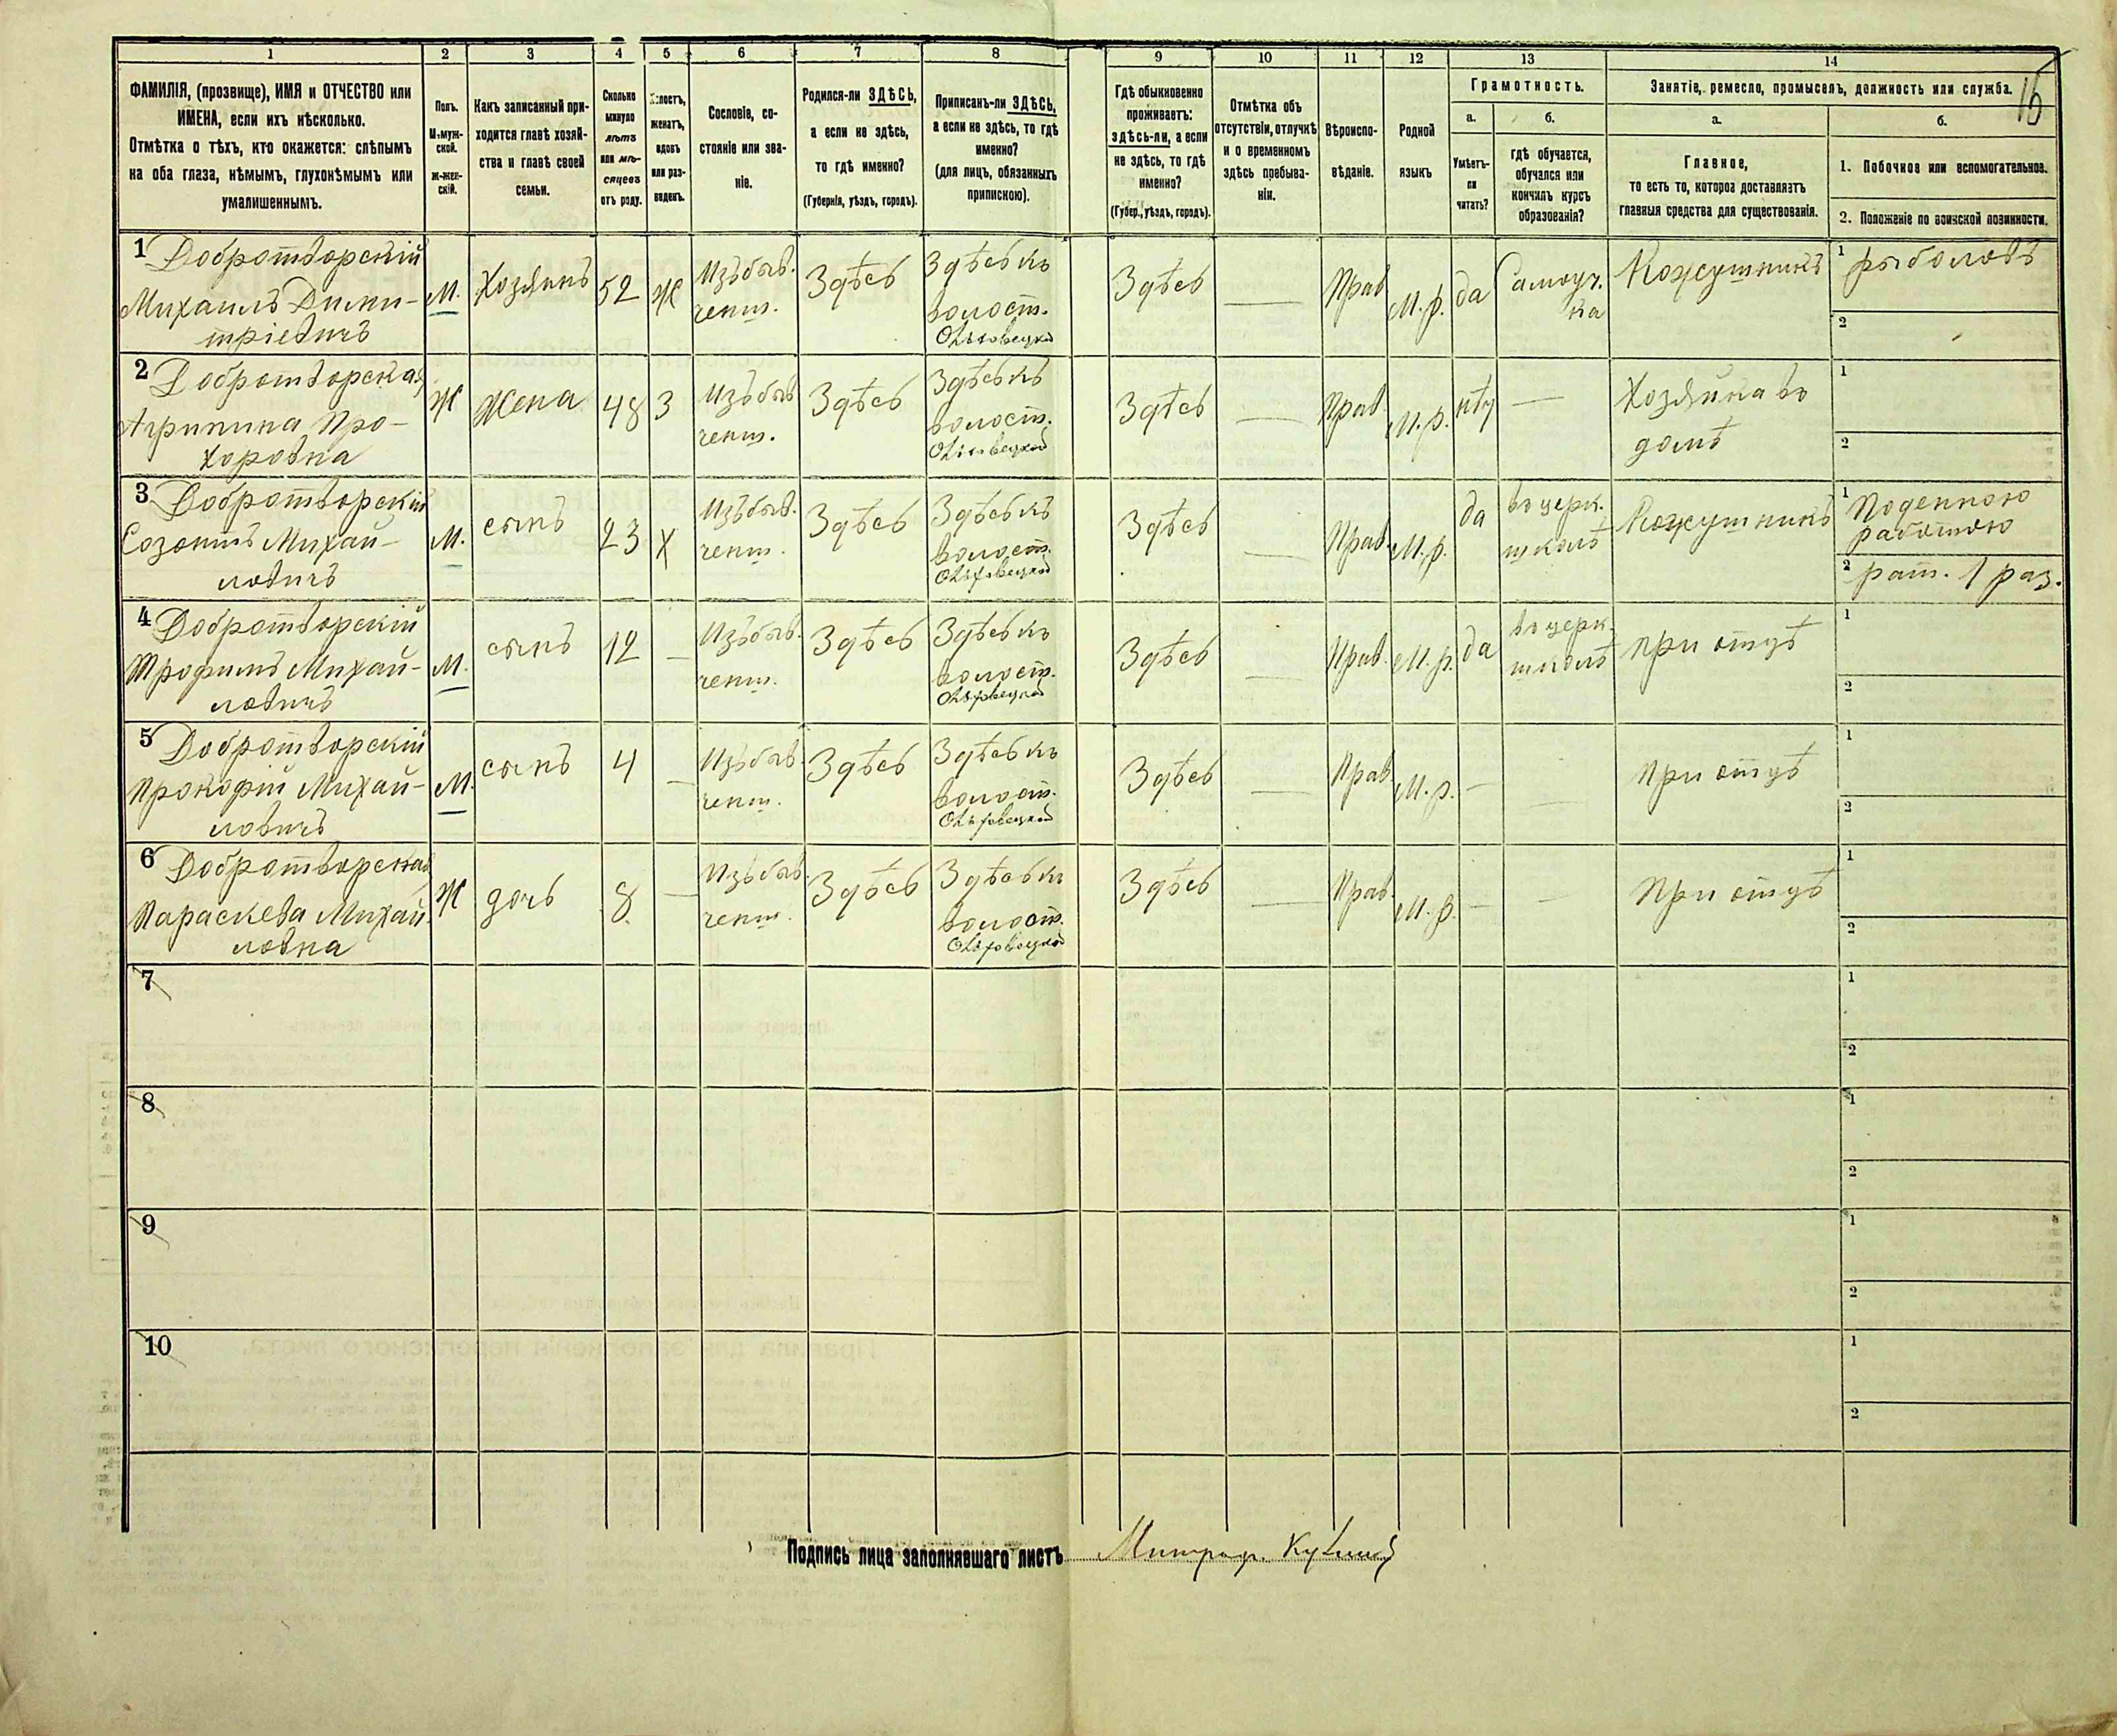 15
1 2 3 4 5 6 7 8 9 10 11 12 13 14
ФАМИЛІЯ, (прозвище), ИМЯ и ОТЧЕСТВО или
ИМЕНА, если ихъ нѣсколько.
Отмѣтка о тѣхъ, кто окажется: слѣпымъ
на оба глаза, нѣмымъ, глухонѣмымъ или
умалишеннымъ.
Полъ.
М-муж-
ской.
ж-жен-
скій.
Какъ записанный при-
ходится главѣ хозяй-
ства и главѣ своей
семьи.
Сколько
минуло
лѣтъ
или мѣ-
сяцевъ
отъ роду.
Холостъ,
женатъ,
вдовъ
или раз-
веденъ.
Сословіе, со-
стояніе или зва-
ніе.
Родился-ли ЗДѢСЬ,
а если не здѣсь,
то гдѣ именно?
(Губернія, уѣздъ, городъ).
Приписанъ-ли ЗДѢСЬ,
а если не здѣсь, то гдѣ
именно?
(для лицъ, обязанныхъ
припискою).
Гдѣ обыкновенно
проживаетъ:
здѣсь-ли, а если
не здѣсь, то гдѣ
именно?
(Губер., уѣздъ, городъ).
Отмѣтка объ
отсутствіи, отлучкѣ
и о временномъ
здѣсь пребыва-
ніи.
Вѣроиспо-
вѣданіе.
Родной
языкъ
Грамотность.
а.
Умѣетъ-
ли
читать?
б.
гдѣ обучается,
обучался или
кончилъ курсъ
образованія?
Занятіе, ремесло, промыселъ, должность или служба.
а.
Главное,
то есть то, которое доставляетъ
главныя средства для существованія.
б.
1. Побочное или вспомогательное.
2. Положеніе по воинской повинности.
1 Добротворскій
Михаилъ Дими-
тріевичъ
М.
Хозяинъ
52
Ж
Изъ быв.
чинш.
Здѣсь
Здѣсь къ
волост.
Здѣсь
—
Прав
М.р.
да
Самоуч.
ка
Кожушникъ
1 рыболовъ
2
2 Добротворская
Агрипина Про-
хоровна
Ж
жена
48
З
Изъ быв
чинш.
Здѣсь
Здѣсь къ
волост.
Здѣсь
—
Прав.
М.р.
нѣт
—
Хозяйка въ
домѣ
1
2
3 Добротворскій
Созонтъ Михай-
ловичъ
М.
сынъ
23
Х
Изъ быв.
чинш.
Здѣсь
Здѣсь къ
волост.
Здѣсь
—
Прав.
М.р.
да
въ церк.
школѣ
Кожушникъ
1 Поденною
работою
2 рат. 1 раз.
4 Добротворскій
Трофимъ Михай-
ловичъ
М.
сынъ
12
—
Изъ быв.
чинш.
Здѣсь
Здѣсь къ
волост.
Здѣсь
—
Прав.
М.р.
да
въ церк.
школѣ
При отцѣ
1
2
5 Добротворскій
Прокофій Михай-
ловичъ
М.
сынъ
4
—
Изъ быв.
чинш.
Здѣсь
Здѣсь къ
волост.
Здѣсь
—
Прав.
М.р.
—
При отцѣ
1
2
6 Добротворская
Параскева Михай-
ловна
Ж
дочь
8
—
Изъ быв.
чинш.
Здѣсь
Здѣсь къ
волост.
Здѣсь
—
Прав.
М.р.
—
—
При отцѣ
1
2
7
1
2
8
1
2
9
1
2
10
1
2
Подпись лица заполнявшаго листъ Митроф.